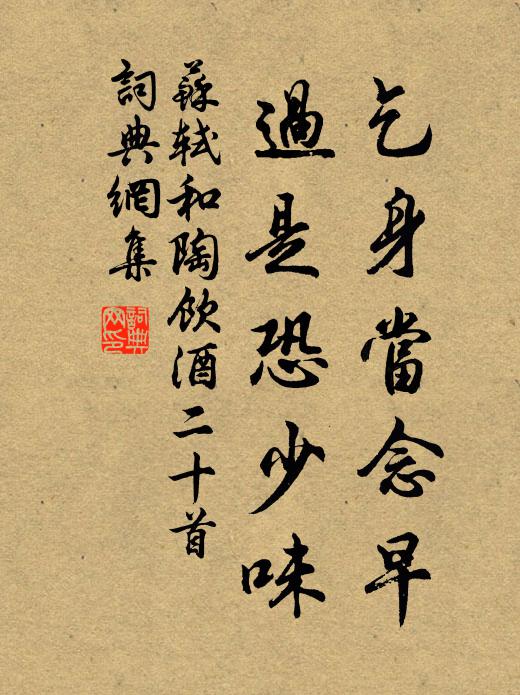 乞身當念早
過是恐少味
蘇軾和陶飲酒二十首
詞典網集
詞典
网印